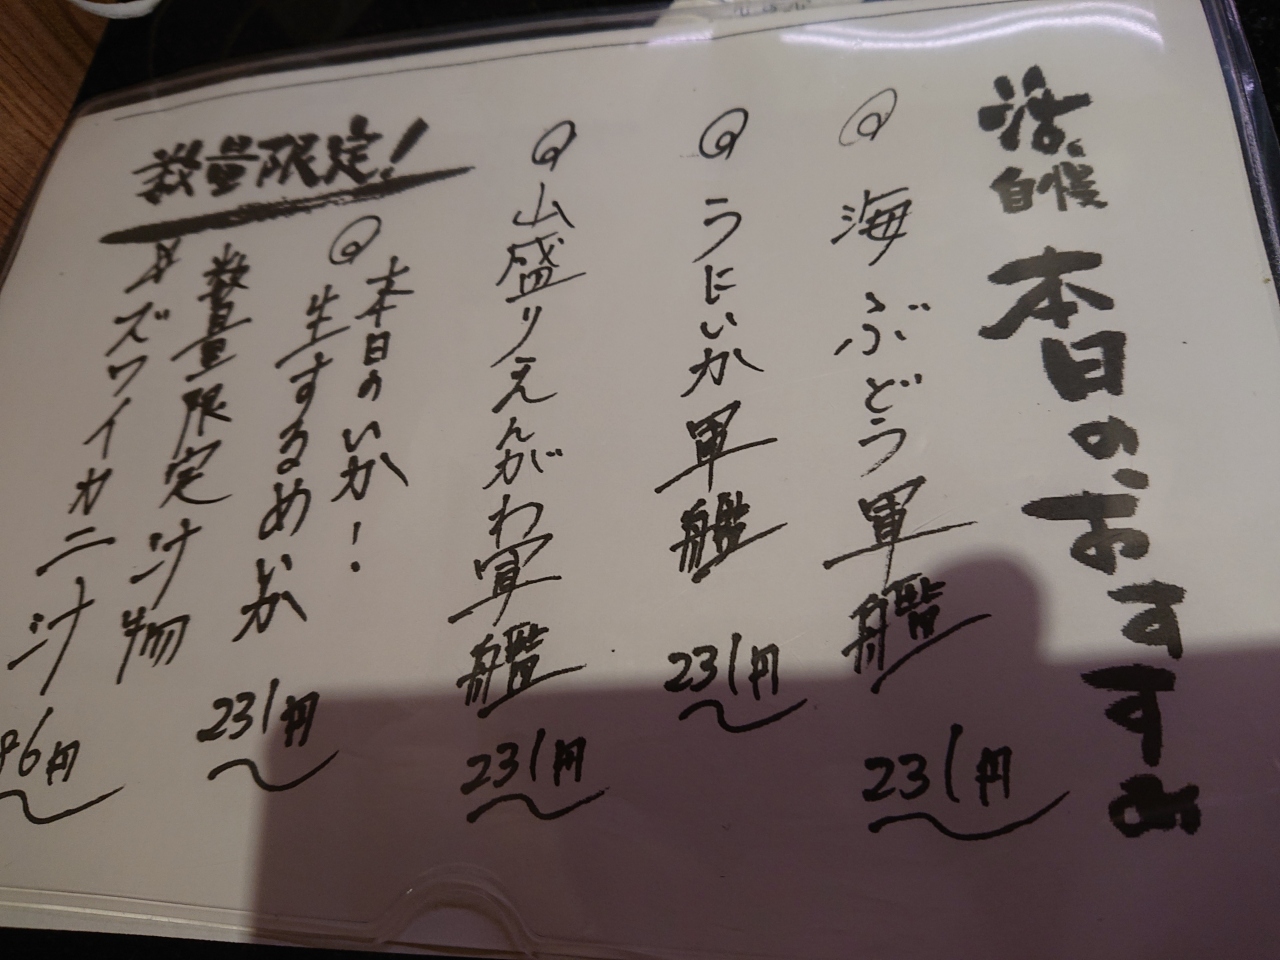 活
自慢
本日のおすすめ
海ぶどう軍艦 231円
うにいか軍艦 231円
山盛りえんがわ軍艦 231円
数量限定!
本日のいか!
生するめいか 231円
数量限定汁物
ズワイカニ汁 96円